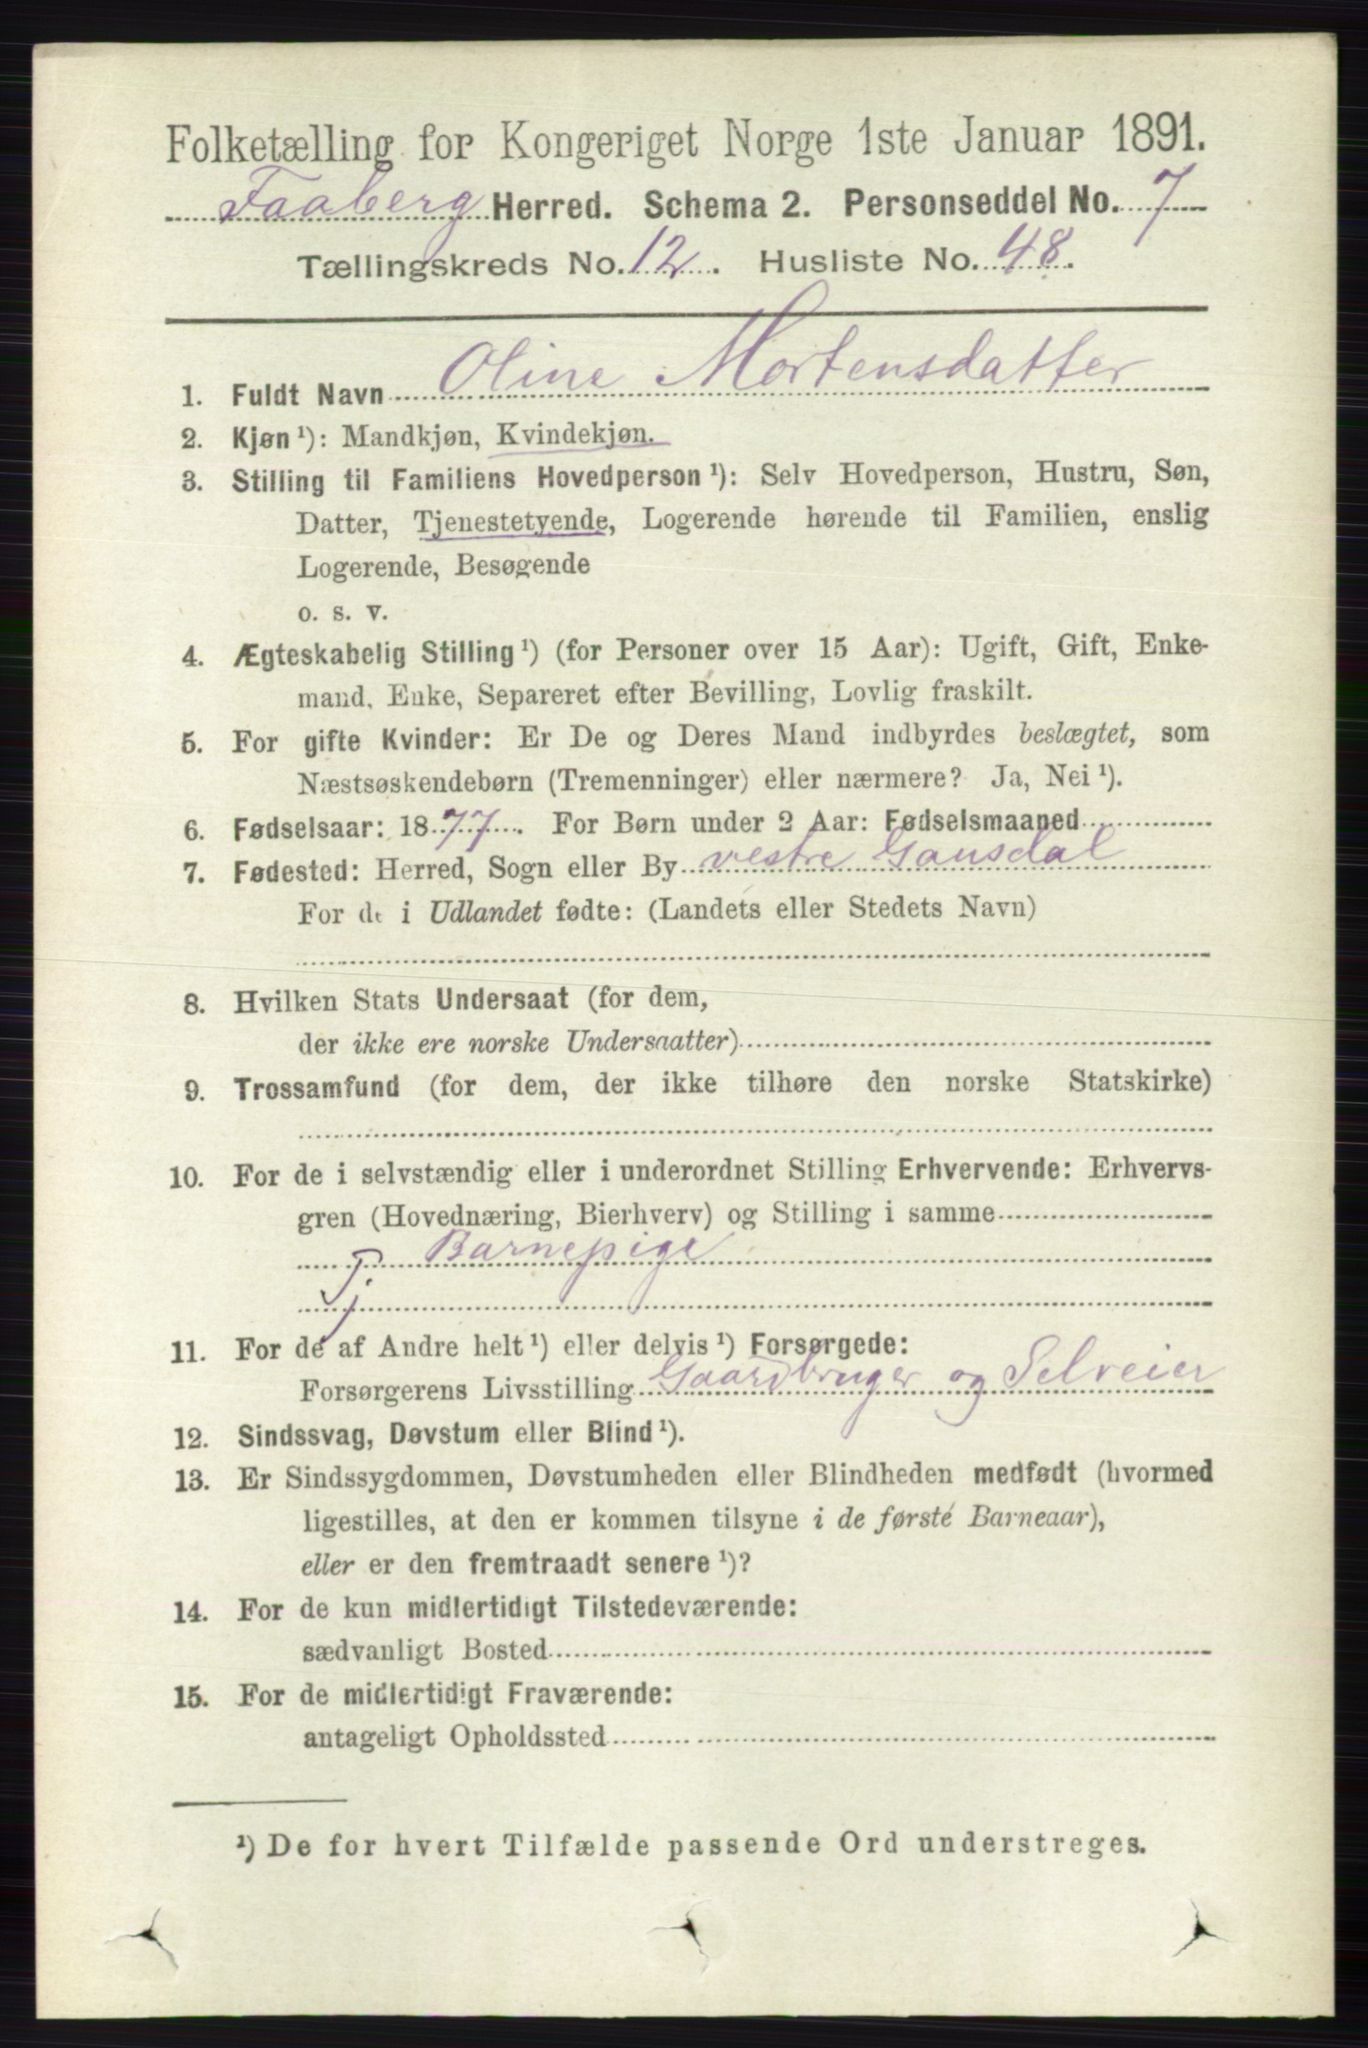 Folketælling for Kongeriget Norge 1ste Januar 1891.
Faaberg Herred. Schema 2. Personseddel No. 7
Tællingskreds No. 12. Husliste No. 48.
1. Fuldt Navn Oline Mortensdatter
2. Kjøn ¹): Mandkjøn, Kvindekjøn.
3. Stilling til Familiens Hovedperson ¹): Selv Hovedperson, Hustru, Søn,
Datter, Tjenestetyende, Logerende hørende til Familien, enslig
Logerende, Besøgende
o. s. v.
4. Ægteskabelig Stilling ¹) (for Personer over 15 Aar): Ugift, Gift, Enke-
mand, Enke, Separeret efter Bevilling, Lovlig fraskilt.
5. For gifte Kvinder: Er De og Deres Mand indbyrdes beslægtet, som
Næstsøskendebørn (Tremenninger) eller nærmere? Ja, Nei ¹).
6. Fødselsaar: 1877. For Børn under 2 Aar: Fødselsmaaned
7. Fødested: Herred, Sogn eller By vestre Gausdal
For de i Udlandet fødte: (Landets eller Stedets Navn)
8. Hvilken Stats Undersaat (for dem,
der ikke ere norske Undersaatter)
9. Trossamfund (for dem, der ikke tilhøre den norske Statskirke)
10. For de i selvstændig eller i underordnet Stilling Erhvervende: Erhvervs-
gren (Hovednæring, Bierhverv) og Stilling i samme
Tj Barnepige
11. For de af Andre helt ¹) eller delvis ¹) Forsørgede:
Forsørgerens Livsstilling Gaardbruger og Selveier
12. Sindssvag, Døvstum eller Blind ¹).
13. Er Sindssygdommen, Døvstumheden eller Blindheden medfødt (hvormed
ligestilles, at den er kommen tilsyne i de første Barneaar),
eller er den fremtraadt senere ¹)?
14. For de kun midlertidigt Tilstedeværende:
sædvanligt Bosted
15. For de midlertidigt Fraværende:
antageligt Opholdssted
¹) De for hvert Tilfælde passende Ord understreges.